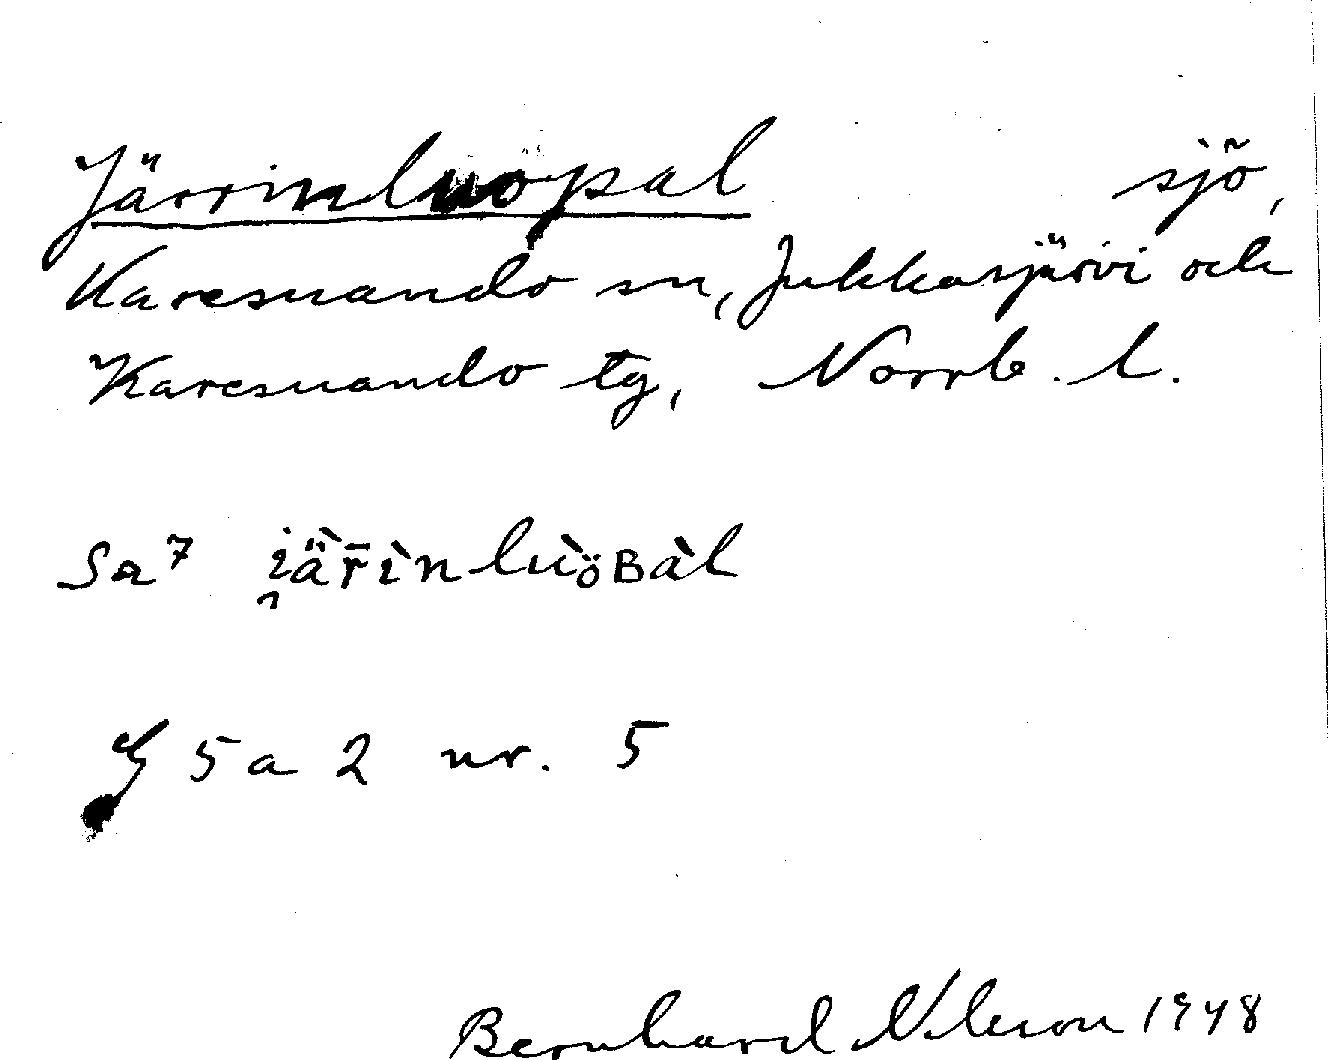 Järrinluopal sjö,
Karesuando sn, Jukkasjärvi och
Karesuando tg, Norrb. l.
Sa7 i̯ä̀r̄ìnluòöʙàl
G 5a 2 nr. 5
Bernhard Nilsson 1948